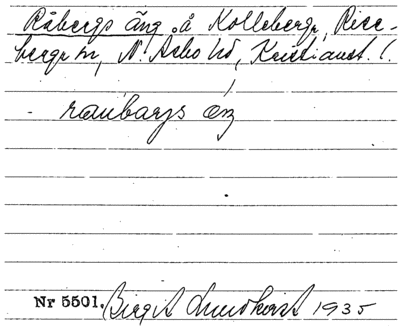 Råbergs äng, å Kolleberga, Rise-
berga sn, N. Åsbo hd, Kristianst. l.
raubarjs ɛŋ
Nr 5501. Birgit Lundkvist 1935